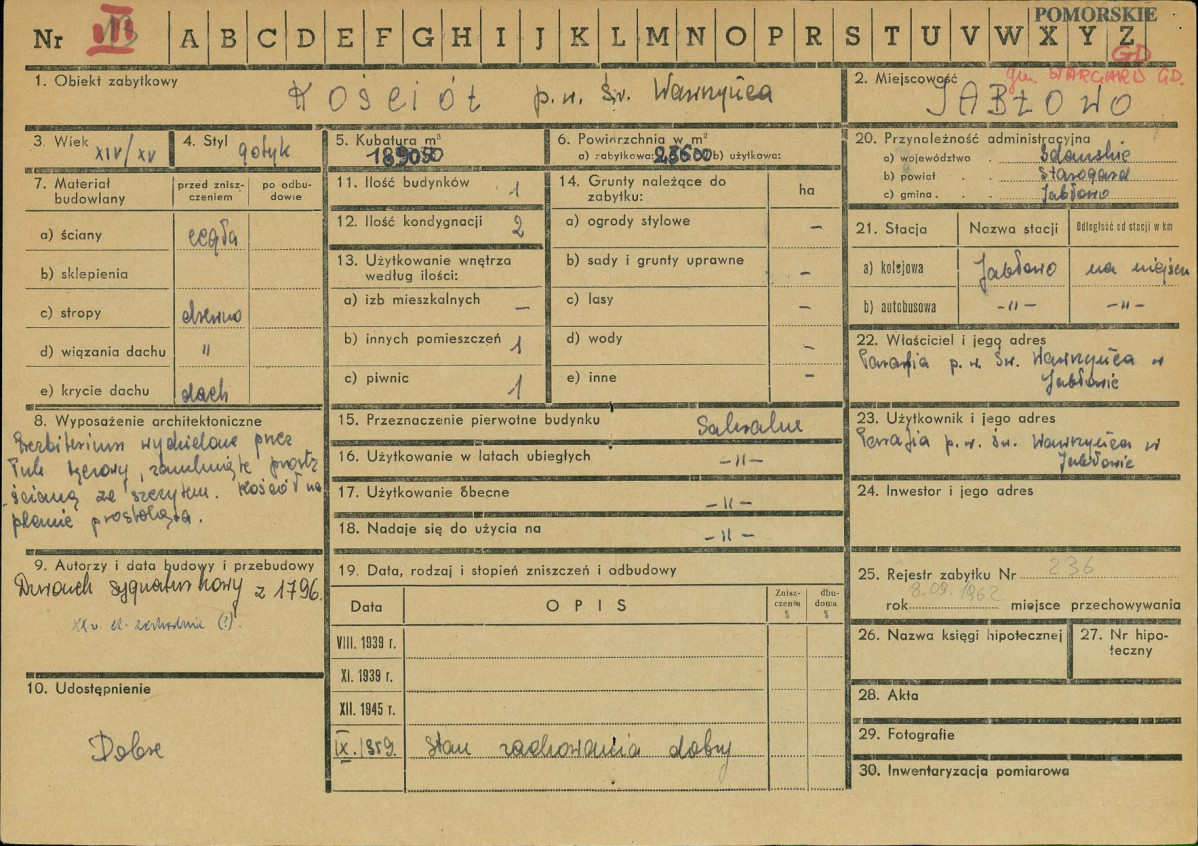 POMORSKIE
Nr III 13 A B C D E F G H I J K L M N O P R S T U V W X Y Z
GD
1. Obiekt zabytkowy
Kościół p. w. Św. Wawrzyńca
2. Miejscowość
JABŁOWO
3. Wiek XIV/XV
4. Styl gotyk
5. Kubatura m³
6. Powierzchnia w m²
a) zabytkowa: b) użytkowa:
7. Materiał budowlany
przed zniszczeniem
po odbudowie
a) ściany cegła
b) sklepienia
c) stropy drewno
d) wiązania dachu "
e) krycie dachu dach
8. Wyposażenie architektoniczne
Prezbiterium wydzielone przez
łuk tęczowy, zamknięte prostą
ścianą ze szczytem. Kościół na
planie prostokąta.
9. Autorzy i data budowy i przebudowy
z 1796.
XX w. el. zachodnia (?).
10. Udostępnienie
Dobre
11. Ilość budynków 1
12. Ilość kondygnacji 2
13. Użytkowanie wnętrza
według ilości:
a) izb mieszkalnych –
b) innych pomieszczeń 1
c) piwnic 1
14. Grunty należące do
zabytku:
ha
a) ogrody stylowe –
b) sady i grunty uprawne –
c) lasy –
d) wody –
e) inne –
15. Przeznaczenie pierwotne budynku Sakralne
16. Użytkowanie w latach ubiegłych -"-
17. Użytkowanie obecne -"-
18. Nadaje się do użycia na -"-
19. Data, rodzaj i stopień zniszczeń i odbudowy
Data
OPIS
Zniszczenia %
dbudowia %
VIII. 1939 r.
XI. 1939 r.
XII. 1945 r.
IX. 1959. Stan zachowania dobry
20. Przynależność administracyjna
a) województwo Gdańskie
b) powiat Starogard
c) gmina Jabłowo
21. Stacja
Nazwa stacji
Odległość od stacji w km
a) kolejowa Jabłowo na miejscu
b) autobusowa -"- -"-
22. Właściciel i jego adres
Parafia p. w. Św. Wawrzyńca w
Jabłowie
23. Użytkownik i jego adres
Parafia p. w. Św. Wawrzyńca w
Jabłowie
24. Inwestor i jego adres
25. Rejestr zabytku Nr 236
rok 8.09.1962 miejsce przechowywania
26. Nazwa księgi hipotecznej
27. Nr hipoteczny
28. Akta
29. Fotografie
30. Inwentaryzacja pomiarowa